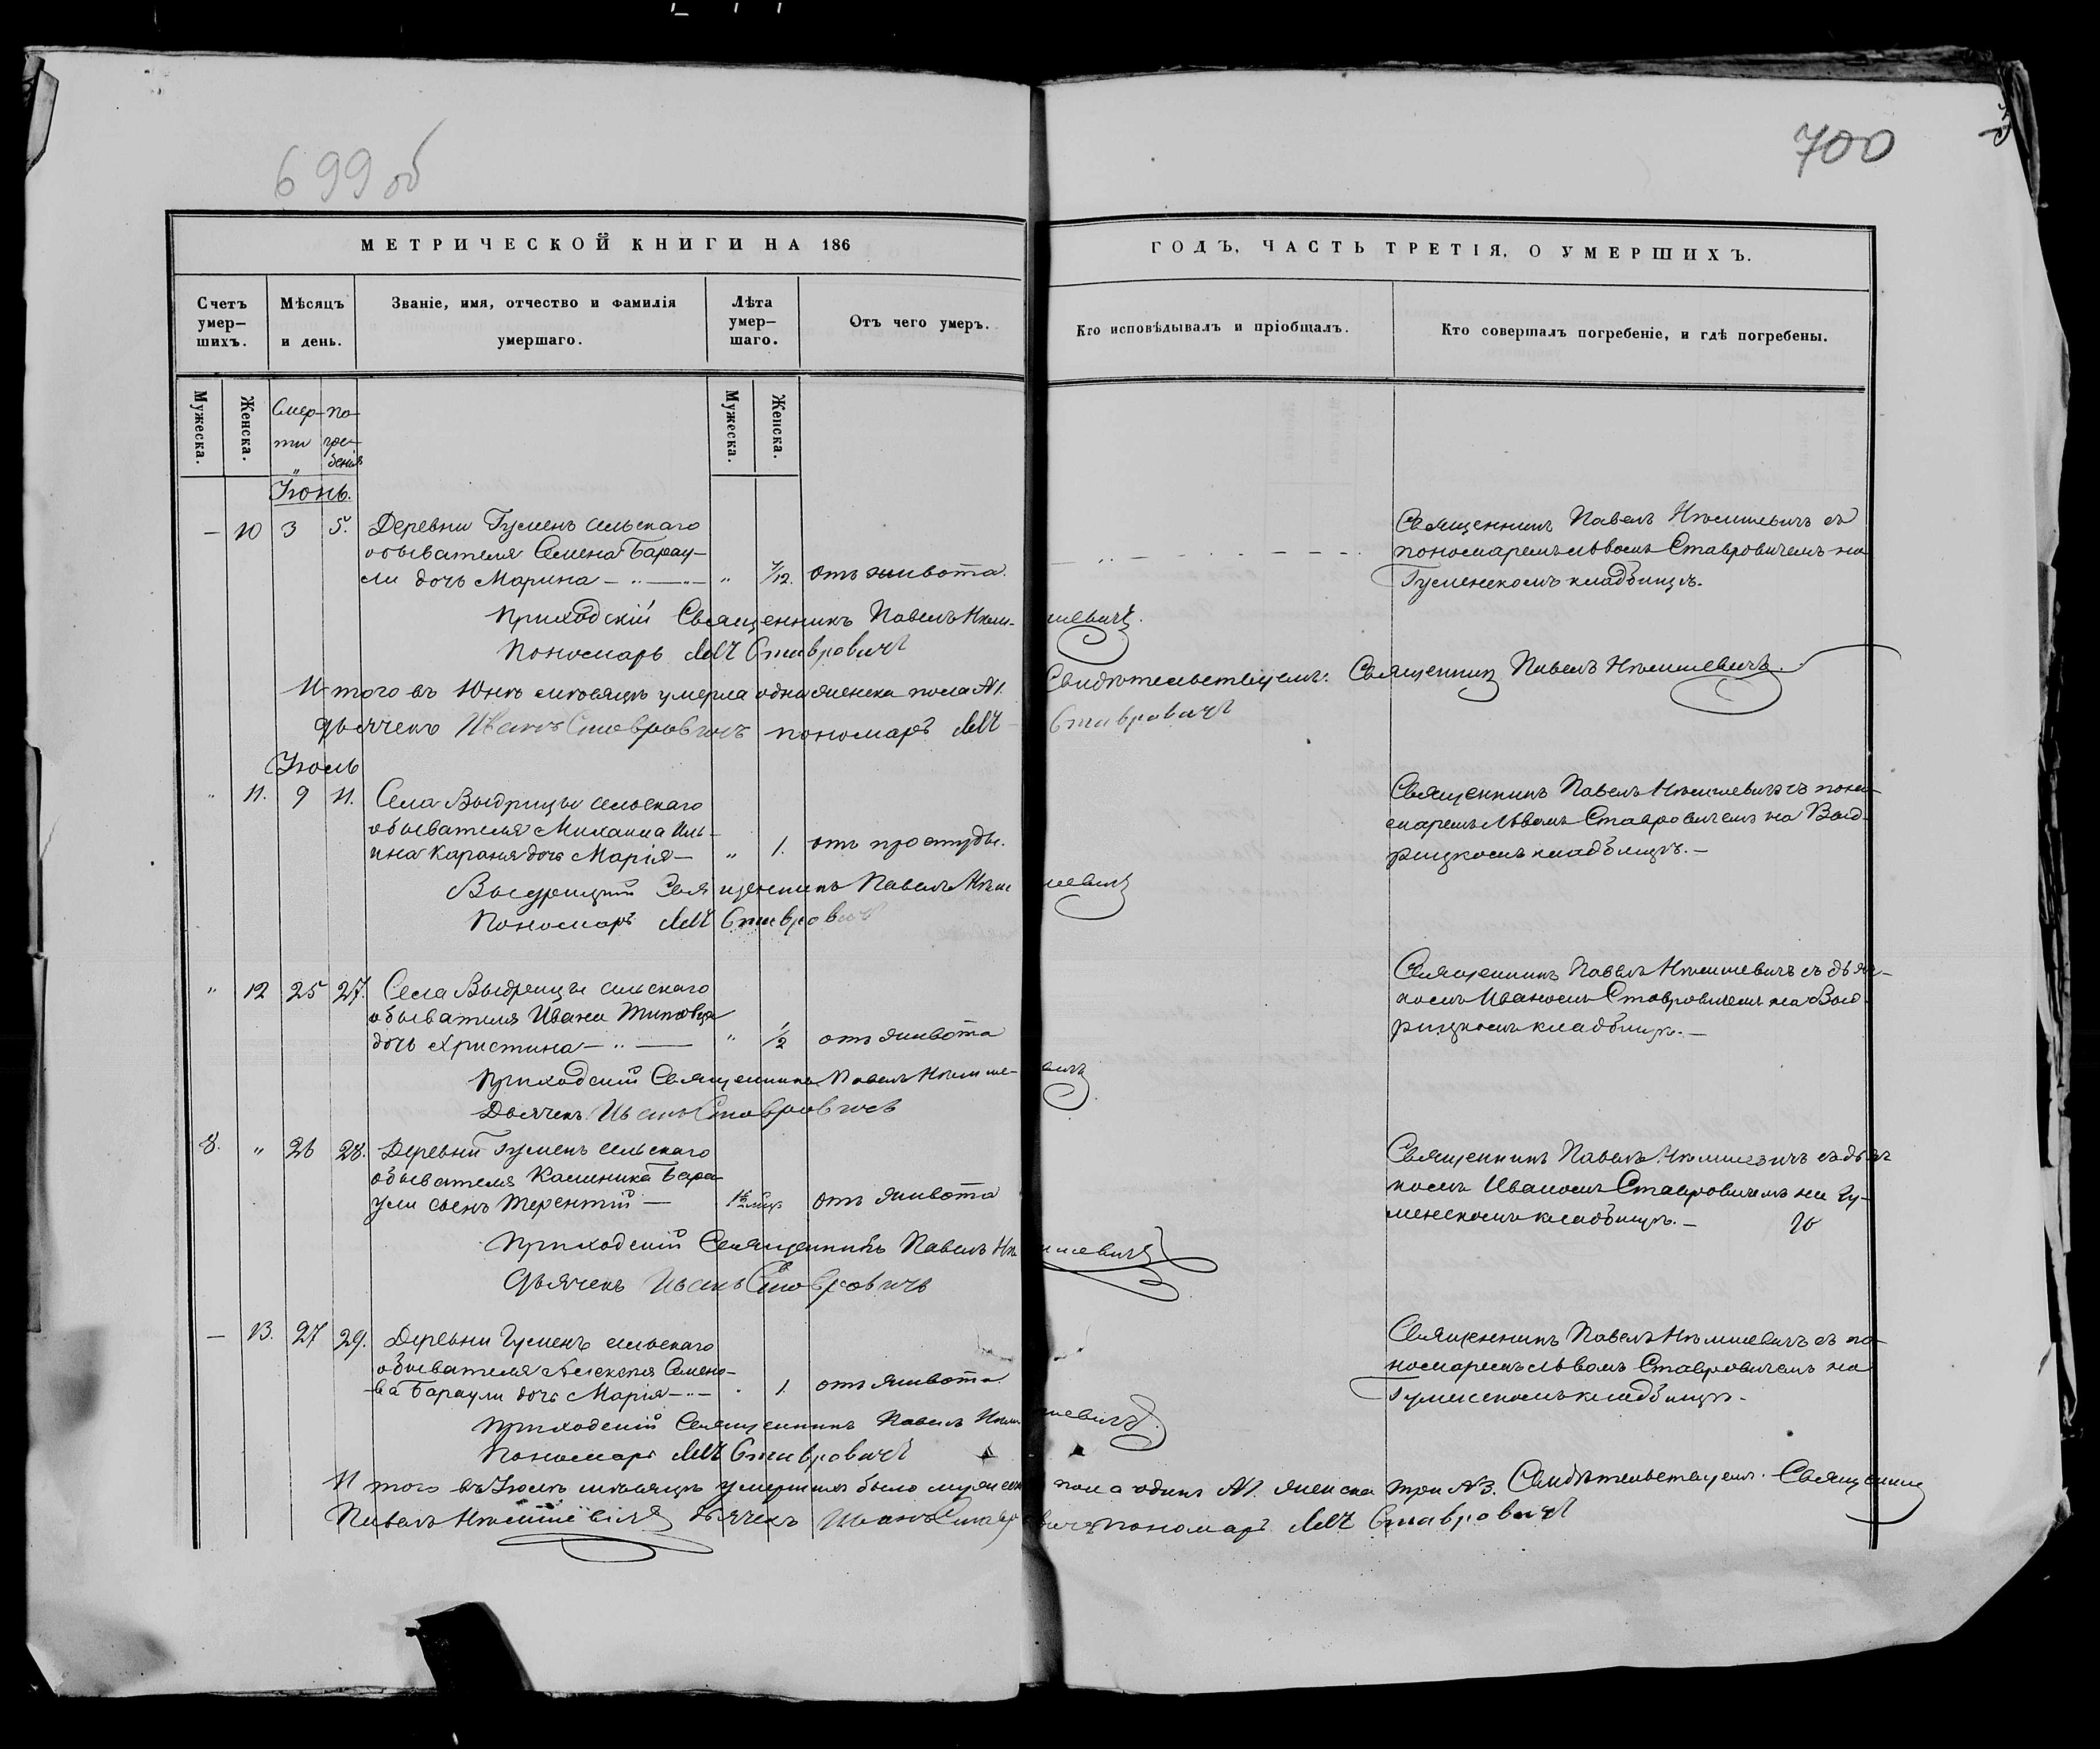 699 об
700
МЕТРИЧЕСКОЙ КНИГИ НА 186
ГОДЪ, ЧАСТЬ ТРЕТІЯ, О УМЕРШИХЪ.
Счетъ умер-шихъ.
Мѣсяцъ и день.
Званіе, имя, отчество и фамилія умершаго.
Лѣта умер-шаго.
Отъ чего умеръ.
Кто исповѣдывалъ и пріобщалъ.
Кто совершалъ погребеніе, и гдѣ погребены.
Мужеска.
Женска.
Смер-ти
по-гре-бенія
Мужеска.
Женска.
Іюнь.
— 10 3 5. Деревни Гуменъ сельскаго Священникъ Павелъ Нѣмшевичъ съ
обывателя Семена Барау- пономаремъ Львомъ Ставровичемъ на
ли дочь Марина — „ — „ /12. отъ живота. Гуменскомъ кладбищѣ.
Приходскій Священникъ Павелъ Нѣмшевичъ.
Пономарь Левъ Ставровичъ
Итого въ Юнѣ мѣсяцѣ умерла одна женска пола №1. Свидѣтельствуемъ: Священникъ Павелъ Нѣмшевичъ.
Дьячекъ Иванъ Ставровичъ пономарь Левъ Ставровичъ
Іюль
„ 11. 9 11. Села Выдрицы сельскаго Священникъ Павелъ Нѣмшевичъ съ поно-
обывателя Михаила Иль- маремъ Львомъ Ставровичемъ на Выд-
ина Караня дочь Марія — „ 1. отъ простуды. рицкомъ кладбищѣ. —
Выдрицкій Священникъ Павелъ Нѣмшевичъ
Пономарь Левъ Ставровичъ
„ 12 25 27. Села Выдрицы сельскаго Священникъ Павелъ Нѣмшевичъ съ дьяч-
обывателя Ивана комъ Иваномъ Ставровичемъ на Выд-
дочь Христина — „ — „ 1/2 отъ живота рицкомъ кладбищѣ. —
Приходскій Священникъ Павелъ Нѣмшевичъ
Дьячекъ Иванъ Ставровичъ
8. „ 26 28. Деревни Гуменъ сельскаго Священникъ Павелъ Нѣмшевичъ съ дьяч-
обывателя Калиника Бара- комъ Иваномъ Ставровичемъ на Гу-
ули сынъ Терентій — отъ живота менскомъ кладбищѣ. —
Приходскій Священникъ Павелъ Нѣмшевичъ
Дьячекъ Иванъ Ставровичъ
— 13. 27 29. Деревни Гуменъ сельскаго Священникъ Павелъ Нѣмшевичъ съ по-
обывателя Алексея Семено- номаремъ Львомъ Ставровичемъ на
ва Бараули дочь Марія — „ — 1. отъ живота Гуменскомъ кладбищѣ.
Приходскій Священникъ Павелъ Нѣмшевичъ.
Пономарь Левъ Ставровичъ
Итого въ Іюлѣ мѣсяцѣ умершихъ было мужеска пола одинъ №1. женска три №3. Свидѣтельствуемъ. Священникъ
Павелъ Нѣмшевичъ Дьячекъ Иванъ Ставровичъ пономарь Левъ Ставровичъ